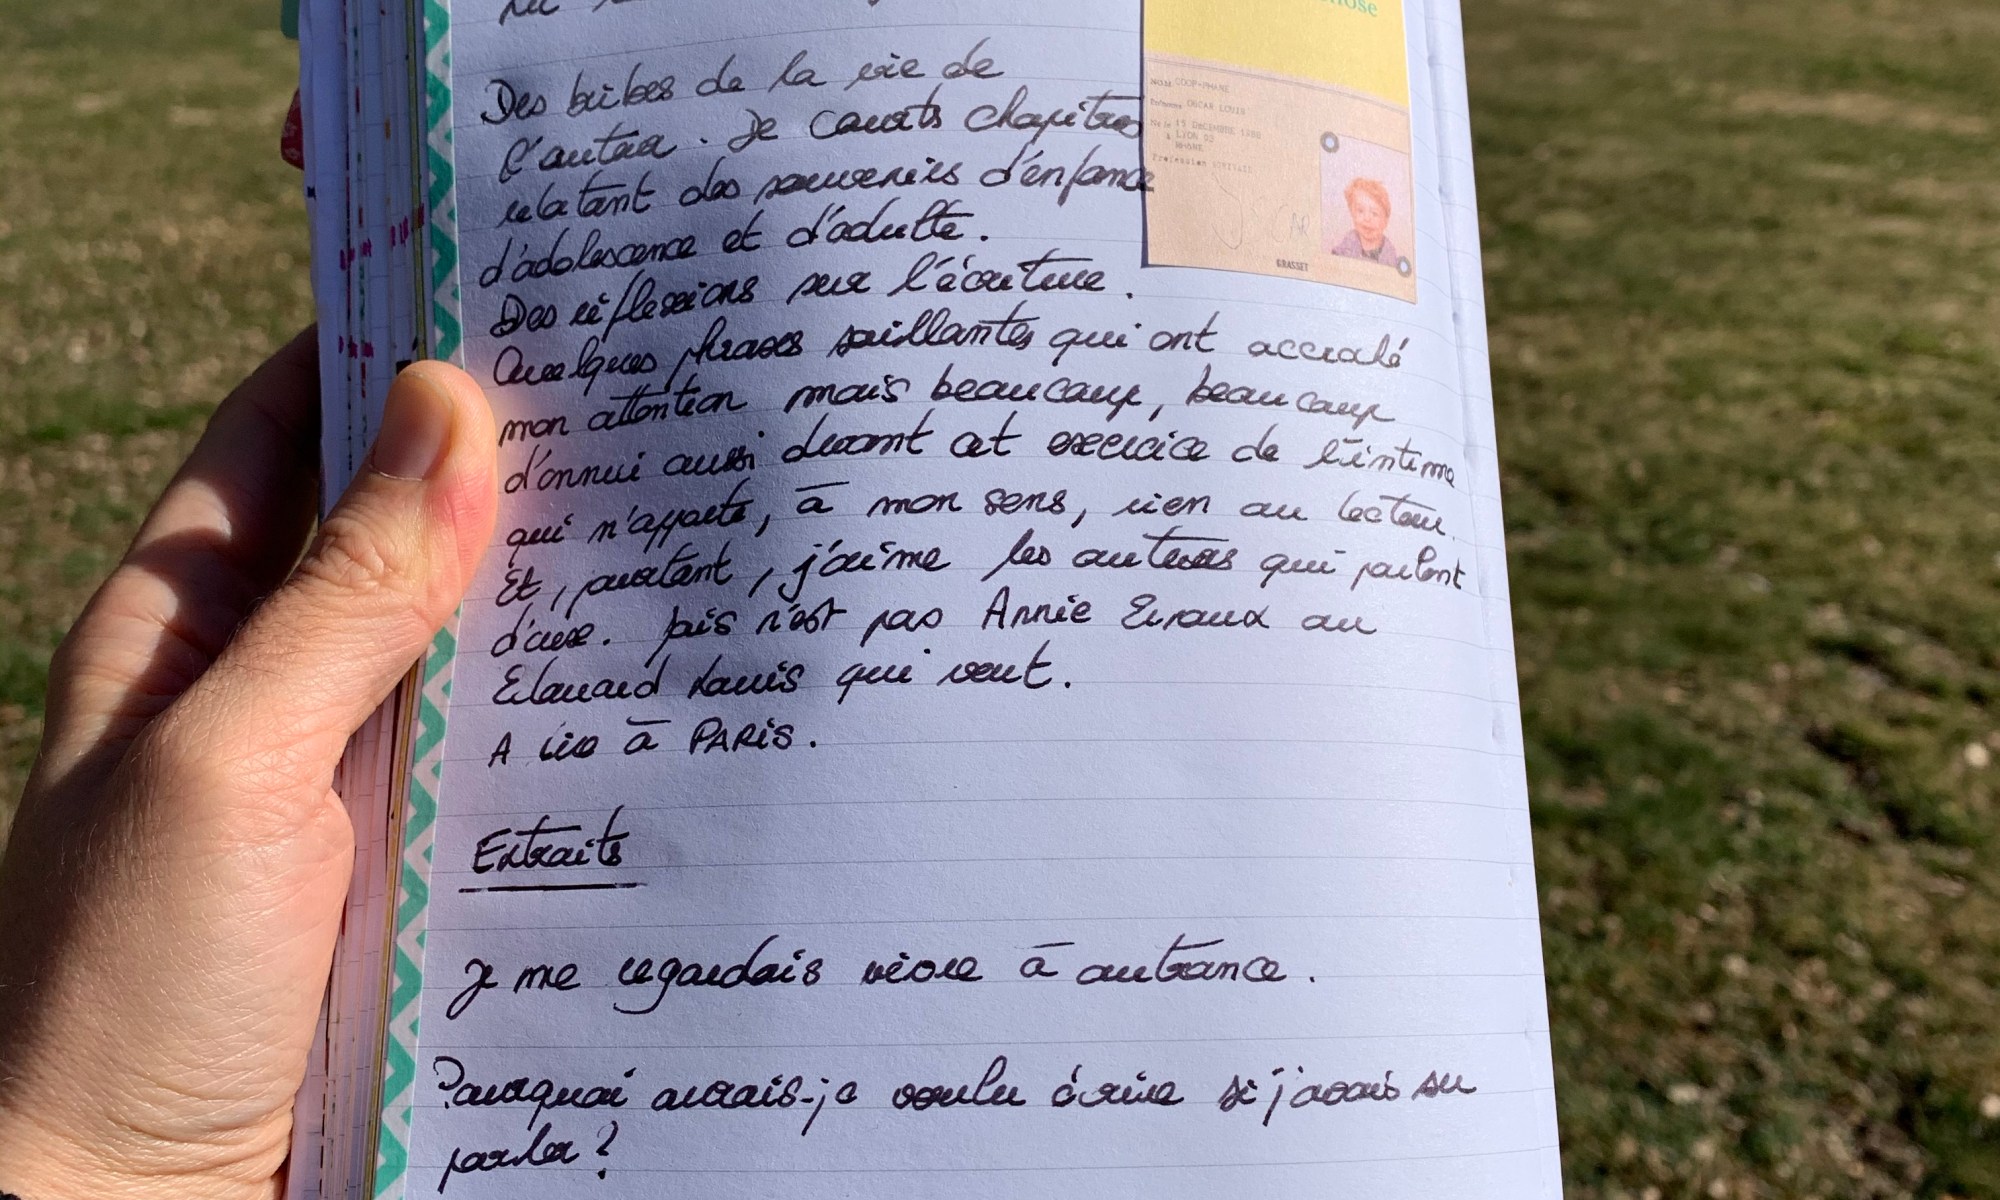 Des bribes de la vie de
l'auteur. De courts chapitres
relatant des souvenirs d'enfance
d'adolescence et d'adulte.
Des réflexions sur l'écriture.
Quelques phrases saillantes qui ont accroché
mon attention mais beaucoup, beaucoup
d'ennui aussi devant cet exercice de l'intime
qui n'apporte, à mon sens, rien au lecteur.
Et, pourtant, j'aime les auteurs qui parlent
d'eux. Mais n'est pas Annie Ernaux ou
Edouard Louis qui veut.
A lire à PARIS.
Extraits
Je me regardais vivre à outrance.
Pourquoi aurais-je voulu écrire si j'avais su
parler?
NOM COOP-PHANE
Prénoms OSCAR LOUIS
Né le 15 DECEMBRE 1988
à LYON 03
RHONE
Profession
OSCAR
GRASSET